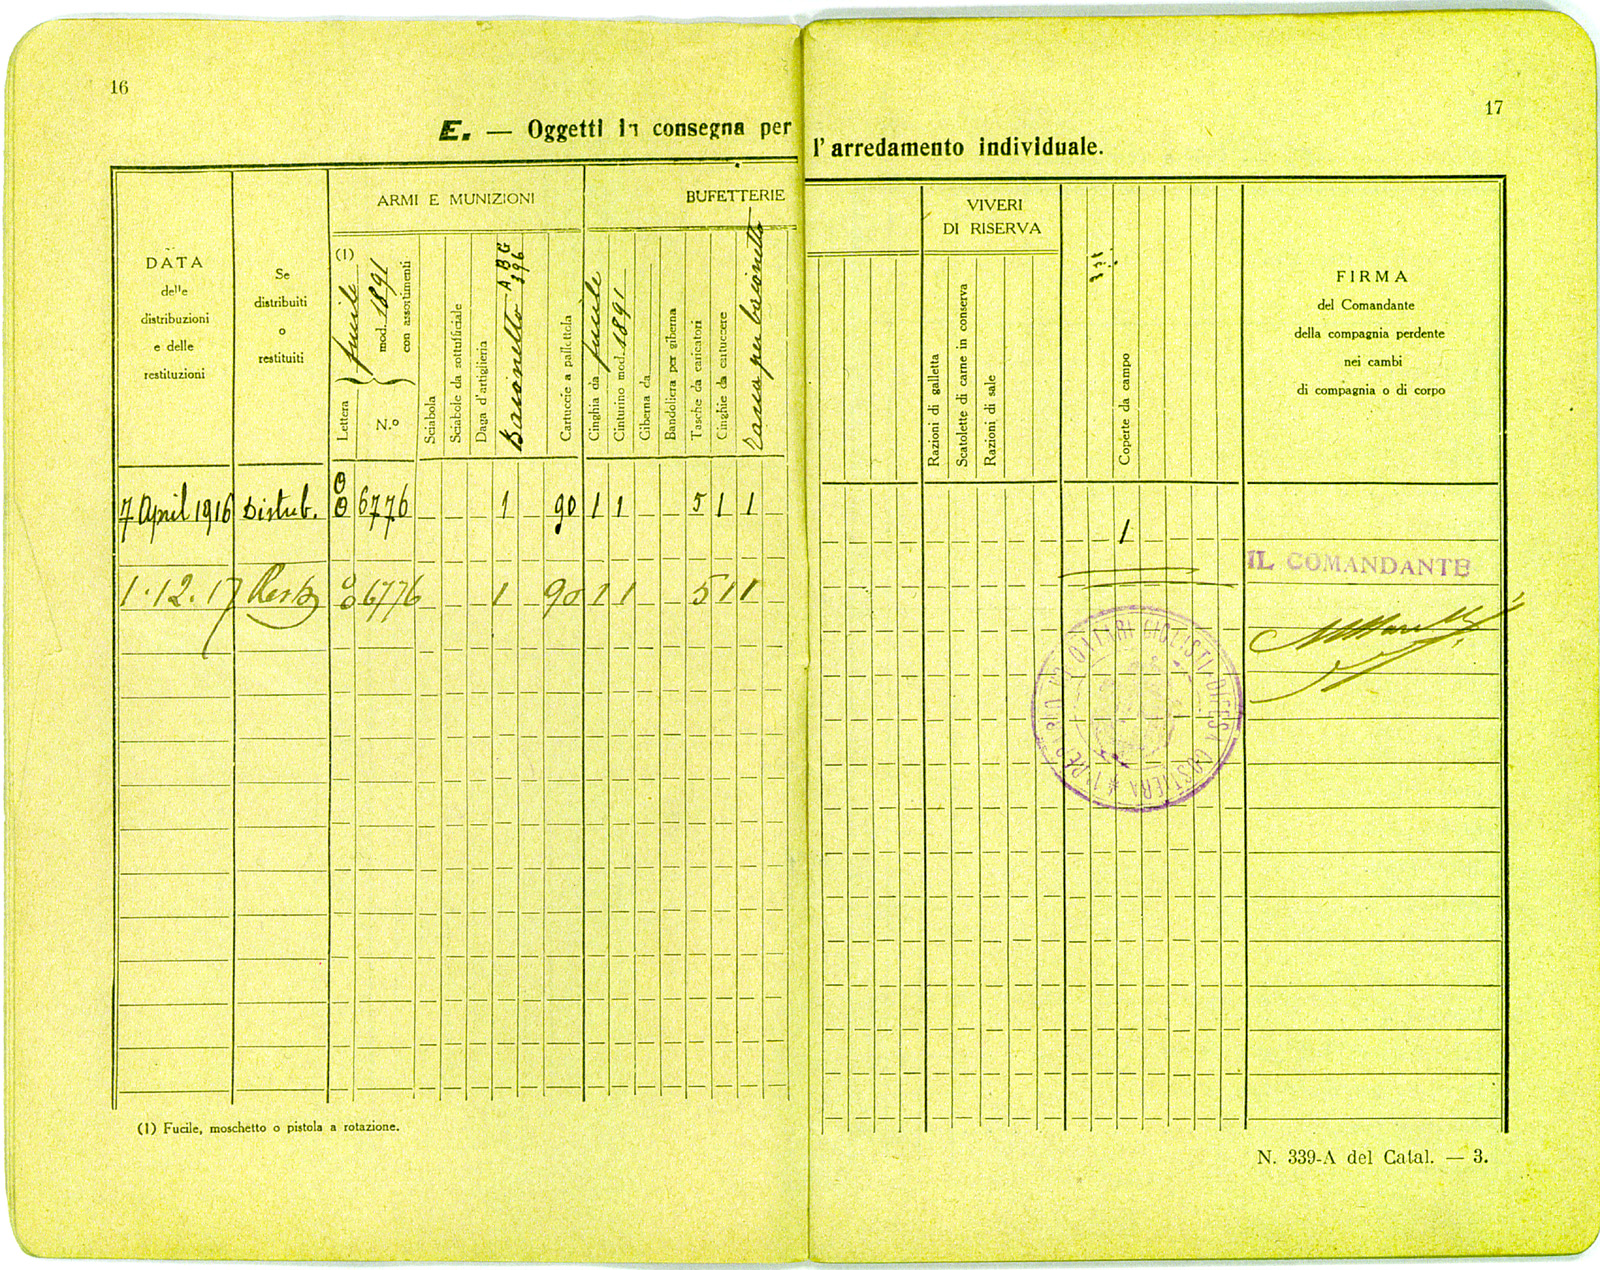 16
E. — Oggetti in consegna per
DATA
delle
distribuzioni
e delle
restituzioni
Se
distribuiti
o
restituiti
ARMI E MUNIZIONI
BUFETTERIE
(1)
fucile
mod. 1891
con assortimenti
Lettera
N.º
Sciabola
Sciabole da sottufficiale
Daga d'artiglieria
Baionetta ABG 396
Cartuccie a pallottola
Cinghia da fucile
Cinturino mod. 1891
Giberna da
Bandoliera per giberna
Tasche da caricatori
Cinghie da cartuccere
per baionetta
7 April 1916 Distrib. OO 6776 1 90 1 1 5 1 1
1.12.17 OO 6776 1 90 1 1 5 1 1
(1) Fucile, moschetto o pistola a rotazione.
17
l'arredamento individuale.
VIVERI
DI RISERVA
Razioni di galletta
Scatolette di carne in conserva
Razioni di sale
Coperte da campo
FIRMA
del Comandante
della compagnia perdente
nei cambi
di compagnia o di corpo
1
IL COMANDANTE
VOLONTARI CICLISTI DIFESA COSTIERA
N. 339-A del Catal. — 3.